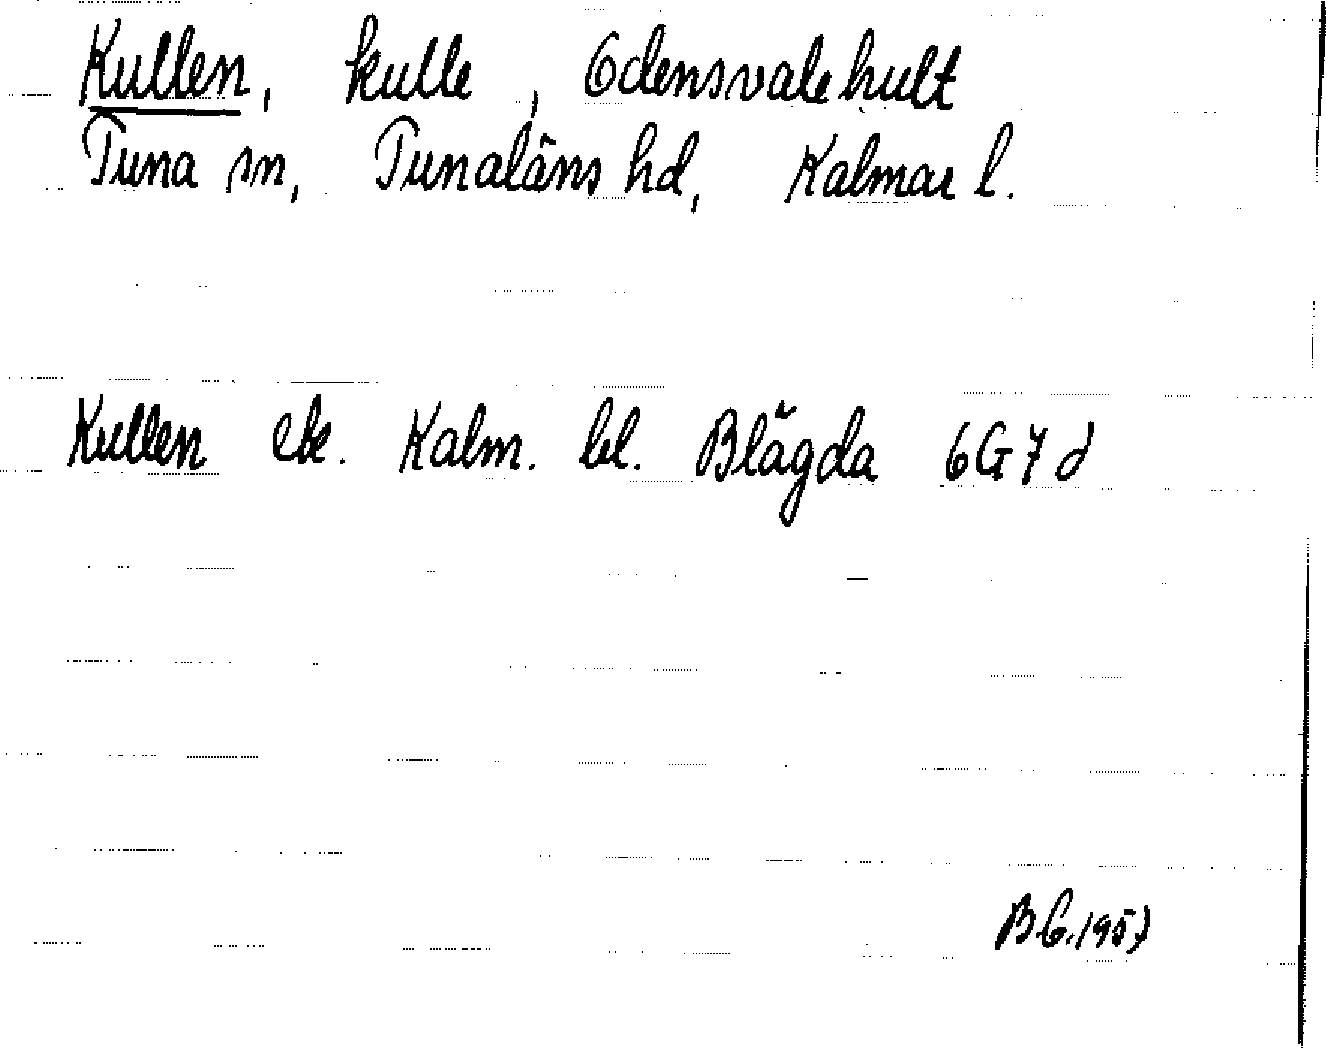 Kullen, kulle, Odensvalehult
Tuna sn, Tunaläns hd, Kalmar l.
Kullen ek. Kalm. bl. Blågda 6G7d
B.G. 1957